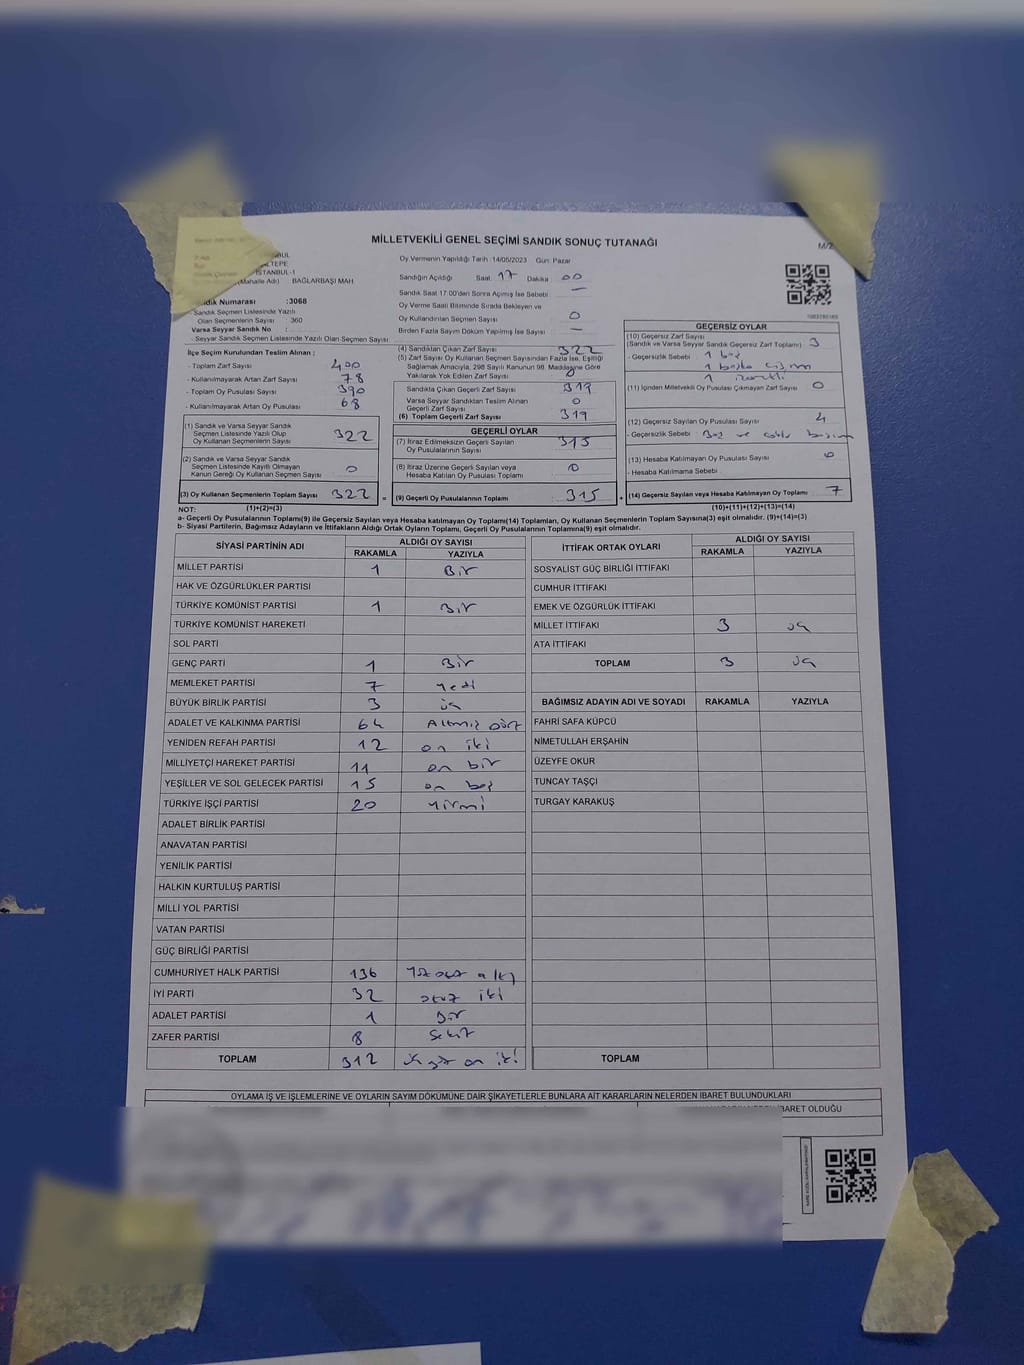 MİLLETVEKİLİ GENEL SEÇİMİ SANDIK SONUÇ TUTANAĞI
M/2
BUL
LTEPE
İSTANBUL-1
(Mahalle Adı) BAĞLARBAŞI MAH.
dık Numarası :3068
Sandık Seçmen Listesinde Yazılı
Olan Seçmenlerin Sayısı : 360
Varsa Seyyar Sandık No :
- Seyyar Sandık Seçmen Listesinde Yazılı Olan Seçmen Sayısı
İlçe Seçim Kurulundan Teslim Alınan :
- Toplam Zarf Sayısı 400
- Kullanılmayarak Artan Zarf Sayısı 78
- Toplam Oy Pusulası Sayısı 390
- Kullanılmayarak Artan Oy Pusulası 68
(1) Sandık ve Varsa Seyyar Sandık
Seçmen Listesinde Yazılı Olup
Oy Kullanan Seçmenlerin Sayısı 322
(2) Sandık ve Varsa Seyyar Sandık
Seçmen Listesinde Kayıtlı Olmayan
Kanun Gereği Oy Kullanan Seçmen Sayısı 0
(3) Oy Kullanan Seçmenlerin Toplam Sayısı 322
(1)+(2)=(3)
Oy Vermenin Yapıldığı Tarih :14/05/2023 Gün: Pazar
Sandığın Açıldığı Saat 17 Dakika 00
Sandık Saat 17:00'den Sonra Açılmış İse Sebebi : —
Oy Verme Saati Bitiminde Sırada Bekleyen ve
Oy Kullandırılan Seçmen Sayısı 0
Birden Fazla Sayım Döküm Yapılmış İse Sayısı —
(4) Sandıktan Çıkan Zarf Sayısı 322
(5) Zarf Sayısı Oy Kullanan Seçmen Sayısından Fazla İse, Eşitliği
Sağlamak Amacıyla, 298 Sayılı Kanunun 98. Maddesine Göre
Yakılarak Yok Edilen Zarf Sayısı 0
Sandıkta Çıkan Geçerli Zarf Sayısı 319
Varsa Seyyar Sandıktan Teslim Alınan
Geçerli Zarf Sayısı 0
(6) Toplam Geçerli Zarf Sayısı 319
GEÇERLİ OYLAR
(7) İtiraz Edilmeksizin Geçerli Sayılan
Oy Pusulalarının Sayısı 315
(8) İtiraz Üzerine Geçerli Sayılan veya
Hesaba Katılan Oy Pusulası Sayısı 0
= (9) Geçerli Oy Pusulalarının Toplamı 315 +
GEÇERSİZ OYLAR
(10) Geçersiz Zarf Sayısı
(Sandık ve Varsa Seyyar Sandık Geçersiz Zarf Toplamı) 3
- Geçersizlik Sebebi 1 boş
1 başka
1
(11) İçinden Milletvekili Oy Pusulası Çıkmayan Zarf Sayısı 0
(12) Geçersiz Sayılan Oy Pusulası Sayısı 4
- Geçersizlik Sebebi : boş ve
(13) Hesaba Katılmayan Oy Pusulası Sayısı 0
- Hesaba Katılmama Sebebi
(14) Geçersiz Sayılan veya Hesaba Katılmayan Oy Toplamı 7
(10)+(11)+(12)+(13)=(14)
NOT:
a- Geçerli Oy Pusulalarının Toplamı(9) ile Geçersiz Sayılan veya Hesaba katılmayan Oy Toplamı(14) Toplamları, Oy Kullanan Seçmenlerin Toplam Sayısına(3) eşit olmalıdır. (9)+(14)=(3)
b- Siyasi Partilerin, Bağımsız Adayların ve İttifakların Aldığı Ortak Oyların Toplamı, Geçerli Oy Pusulalarının Toplamına(9) eşit olmalıdır.
SİYASİ PARTİNİN ADI ALDIĞI OY SAYISI
RAKAMLA YAZIYLA
MİLLET PARTİSİ 1 Bir
HAK VE ÖZGÜRLÜKLER PARTİSİ
TÜRKİYE KOMÜNİST PARTİSİ 1 Bir
TÜRKİYE KOMÜNİST HAREKETİ
SOL PARTİ
GENÇ PARTİ 1 Bir
MEMLEKET PARTİSİ 7 Yedi
BÜYÜK BİRLİK PARTİSİ 3 üç
ADALET VE KALKINMA PARTİSİ 64 Altmış dört
YENİDEN REFAH PARTİSİ 12 on iki
MİLLİYETÇİ HAREKET PARTİSİ 11 on bir
YEŞİLLER VE SOL GELECEK PARTİSİ 15 on beş
TÜRKİYE İŞÇİ PARTİSİ 20 Yirmi
ADALET BİRLİK PARTİSİ
ANAVATAN PARTİSİ
YENİLİK PARTİSİ
HALKIN KURTULUŞ PARTİSİ
MİLLİ YOL PARTİSİ
VATAN PARTİSİ
GÜÇ BİRLİĞİ PARTİSİ
CUMHURİYET HALK PARTİSİ 136 Yüz otuz altı
İYİ PARTİ 32 otuz iki
ADALET PARTİSİ 1 Bir
ZAFER PARTİSİ 8 Sekiz
TOPLAM 312 üç yüz on iki
İTTİFAK ORTAK OYLARI ALDIĞI OY SAYISI
RAKAMLA YAZIYLA
SOSYALİST GÜÇ BİRLİĞİ İTTİFAKI
CUMHUR İTTİFAKI
EMEK VE ÖZGÜRLÜK İTTİFAKI
MİLLET İTTİFAKI 3 üç
ATA İTTİFAKI
TOPLAM 3 üç
BAĞIMSIZ ADAYIN ADI VE SOYADI RAKAMLA YAZIYLA
FAHRİ SAFA KÜPCÜ
NİMETULLAH ERŞAHİN
ÜZEYFE OKUR
TUNCAY TAŞÇI
TURGAY KARAKUŞ
TOPLAM
OYLAMA İŞ VE İŞLEMLERİNE VE OYLARIN SAYIM DÖKÜMÜNE DAİR ŞİKAYETLERLE BUNLARA AİT KARARLARIN NELERDEN İBARET BULUNDUKLARI
İBARET OLDUĞU